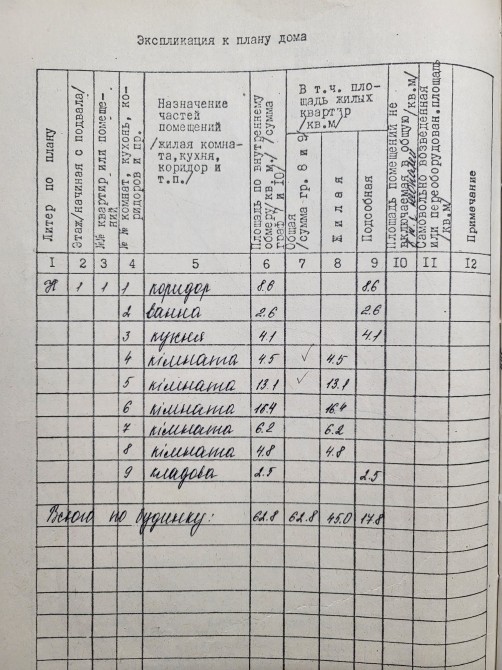 Экспликация к плану дома
Литер по плану
Этаж/начиная с подвала/
№№ квартир или помеще-
ний
№№ комнат, кухонь, ко-
ридоров и пр.
Назначение
частей
помещений
/жилая комна-
та,кухня,
коридор и
т.п./
Площадь по внутреннему
обмеру/кв.м./ /сумма
граф 7 и 10/
В т.ч. пло-
щадь жилых
квартир
/кв.м/
Общая
/сумма гр. 8 и 9/
Жилая
Подсобная
Площадь помещений не
включаемая в общую /кв.м/
Самовольно возведенная
или переоборудован.площадь
/кв.м/
Примечание
I 2 3 4 5 6 7 8 9 IO II I2
1 1 1 коридор 8.6 8.6
2 ванна 2.6 2.6
3 кухня 4.1 4.1
4 кімната 4.5 4.5
5 кімната 13.1 13.1
6 кімната 16.4 16.4
7 кімната 6.2 6.2
8 кімната 4.8 4.8
9 кладова 2.5 2.5
Всього по будинку: 62.8 62.8 45.0 17.8